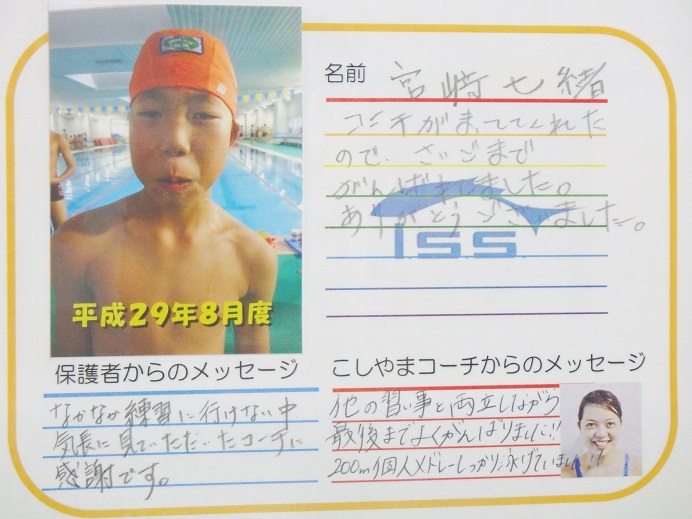 平成29年8月度
名前 宮﨑七緒
コーチがまっててくれた
ので、さいごまで
がんばれました。
ありがとうございました。
ISS
保護者からのメッセージ
なかなか練習に行けない中
気長に見ていただいたコーチに
感謝です。
こしやまコーチからのメッセージ
他の習い事と両立しながら
最後までよくがんばりました!!
200m個人メドレーしっかり泳げていました!!